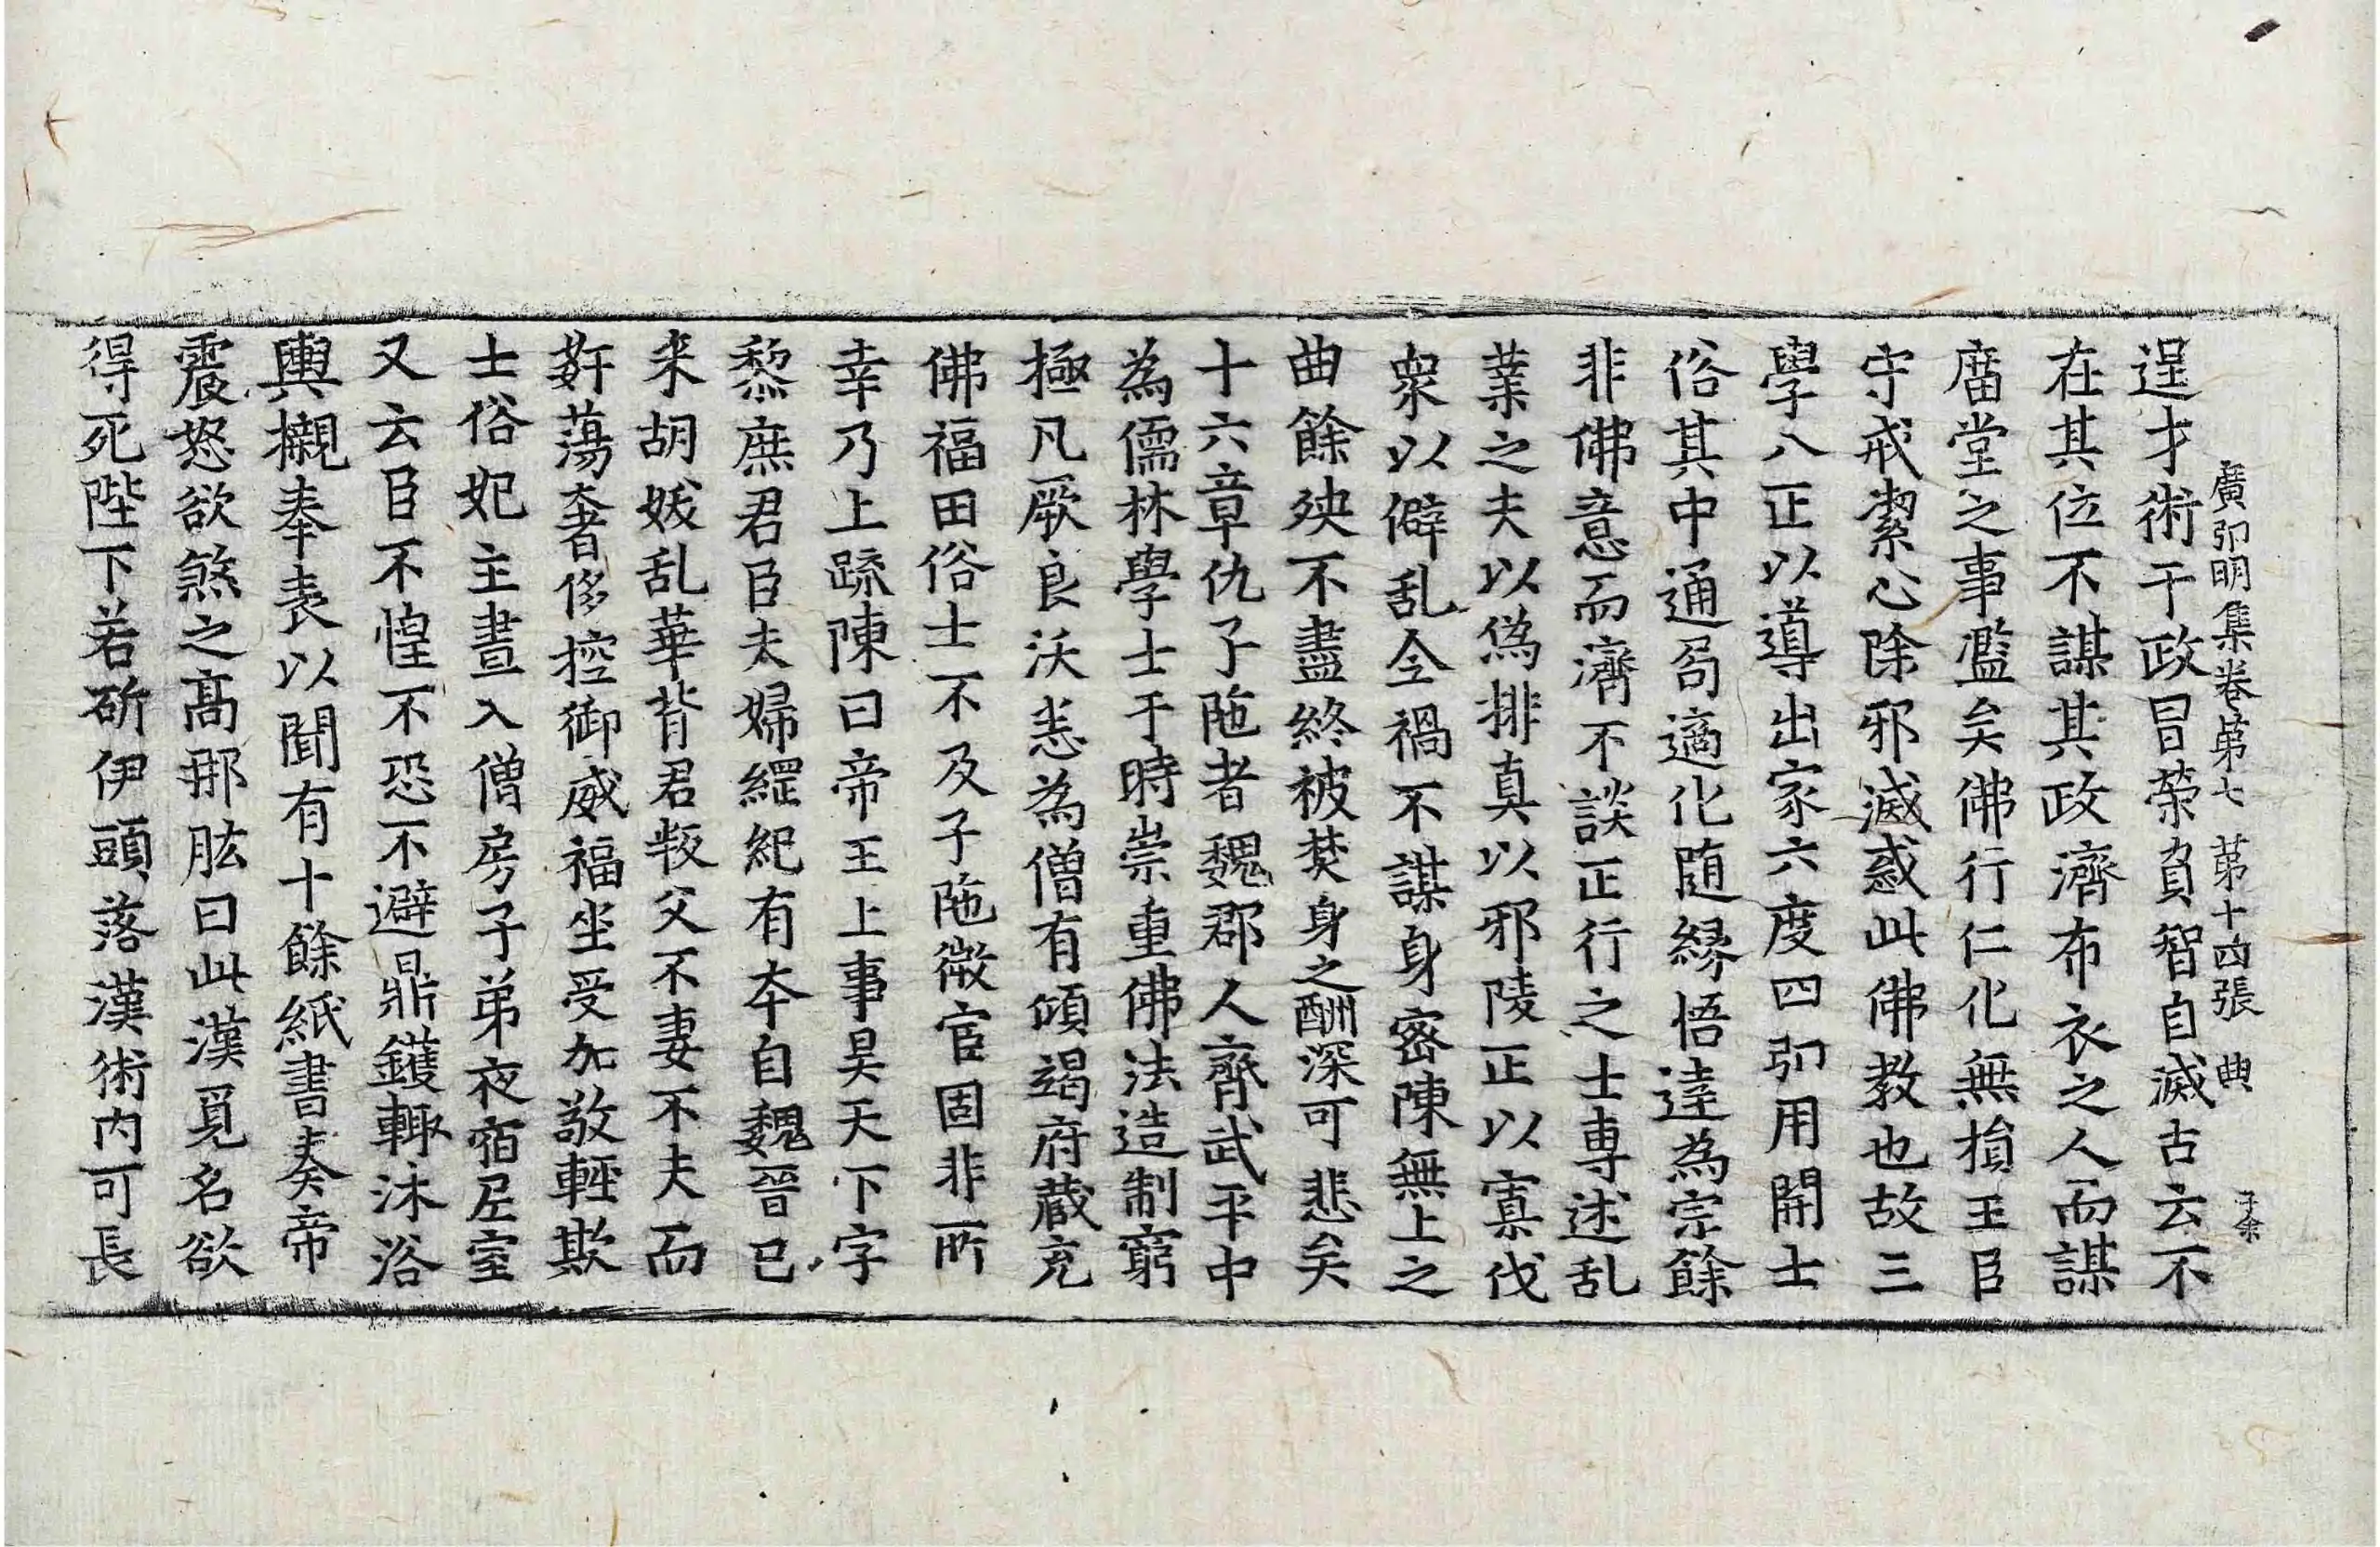 廣弘明集卷第七 第十四張 典 子余
逞才術干政冒榮負智自滅古云不
在其位不謀其政濟布衣之人而謀
廟堂之事濫矣佛行仁化無損王臣
守戒潔心除邪滅惑此佛教也故三
學八正以導出家六度四弘用開士
俗其中通局適化随緣悟達為宗餘
非佛意而濟不談正行之士專述乱
業之夫以偽排真以邪陵正以寡伐
衆以僻乱全禍不謀身密陳無上之
曲餘殃不盡終被焚身之酬深可悲矣
十六章仇子陁者魏郡人齊武平中
為儒林學士于時崇重佛法造制窮
極凡厥良沃悉為僧有傾竭府藏充
佛福田俗士不及子陁微官固非所
幸乃上䟽陳曰帝王上事昊天下字
黎庶君臣夫婦綱紀有本自魏晉已
来胡妖乱華背君叛父不妻不夫而
姧蕩奢侈控御威福坐受加敬輕欺
士俗妃主晝入僧房子弟夜宿尼室
又云臣不惶不恐不避鼎鑊輙沐浴
輿櫬奉表以聞有十餘紙書奏帝
震怒欲煞之高那肱曰此漢覓名欲
得死陛下若斫伊頭落漢術内可長